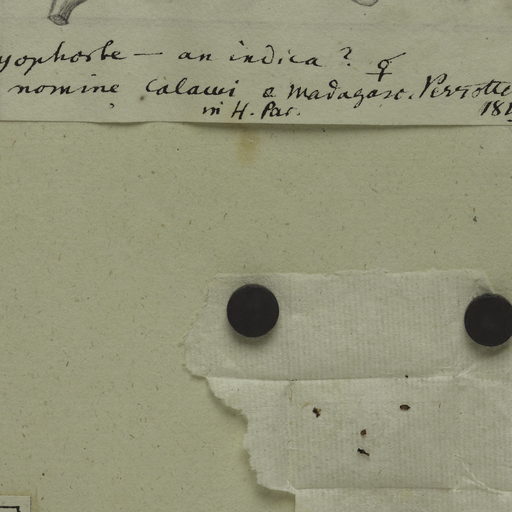 yophorbe — an indica? ⚥
nomine Calawi a Madagasc. Perrotte
in H. Par. 181